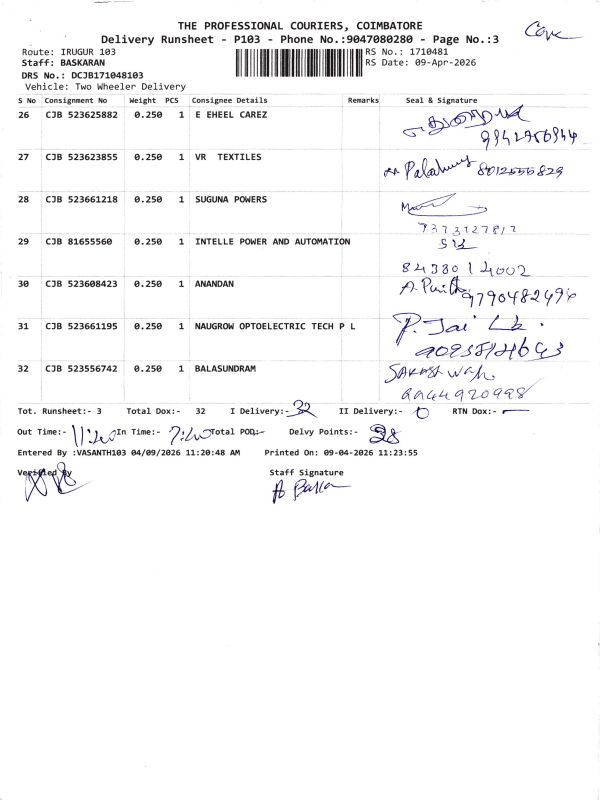 THE PROFESSIONAL COURIERS, COIMBATORE
Delivery Runsheet - P103 - Phone No.:9047080280 - Page No.:3
Route: IRUGUR 103 RS No.: 1710481
Staff: BASKARAN RS Date: 09-Apr-2026
DRS No.: DCJB171048103
Vehicle: Two Wheeler Delivery
S No Consignment No Weight PCS Consignee Details Remarks Seal & Signature
26 CJB 523625882 0.250 1 E EHEEL CAREZ
27 CJB 523623855 0.250 1 VR TEXTILES
8012555829
28 CJB 523661218 0.250 1 SUGUNA POWERS
7373127817
29 CJB 81655560 0.250 1 INTELLE POWER AND AUTOMATION
8438014002
30 CJB 523608423 0.250 1 ANANDAN
9790482494
31 CJB 523661195 0.250 1 NAUGROW OPTOELECTRIC TECH P L
P. Jai
32 CJB 523556742 0.250 1 BALASUNDRAM
Tot. Runsheet:- 3 Total Dox:- 32 I Delivery:- 32 II Delivery:- 0 RTN Dox:- —
Out Time:- 11:20 In Time:- 7:20 Total POD:- Delvy Points:- 28
Entered By :VASANTH103 04/09/2026 11:20:48 AM Printed On: 09-04-2026 11:23:55
Verified By Staff Signature